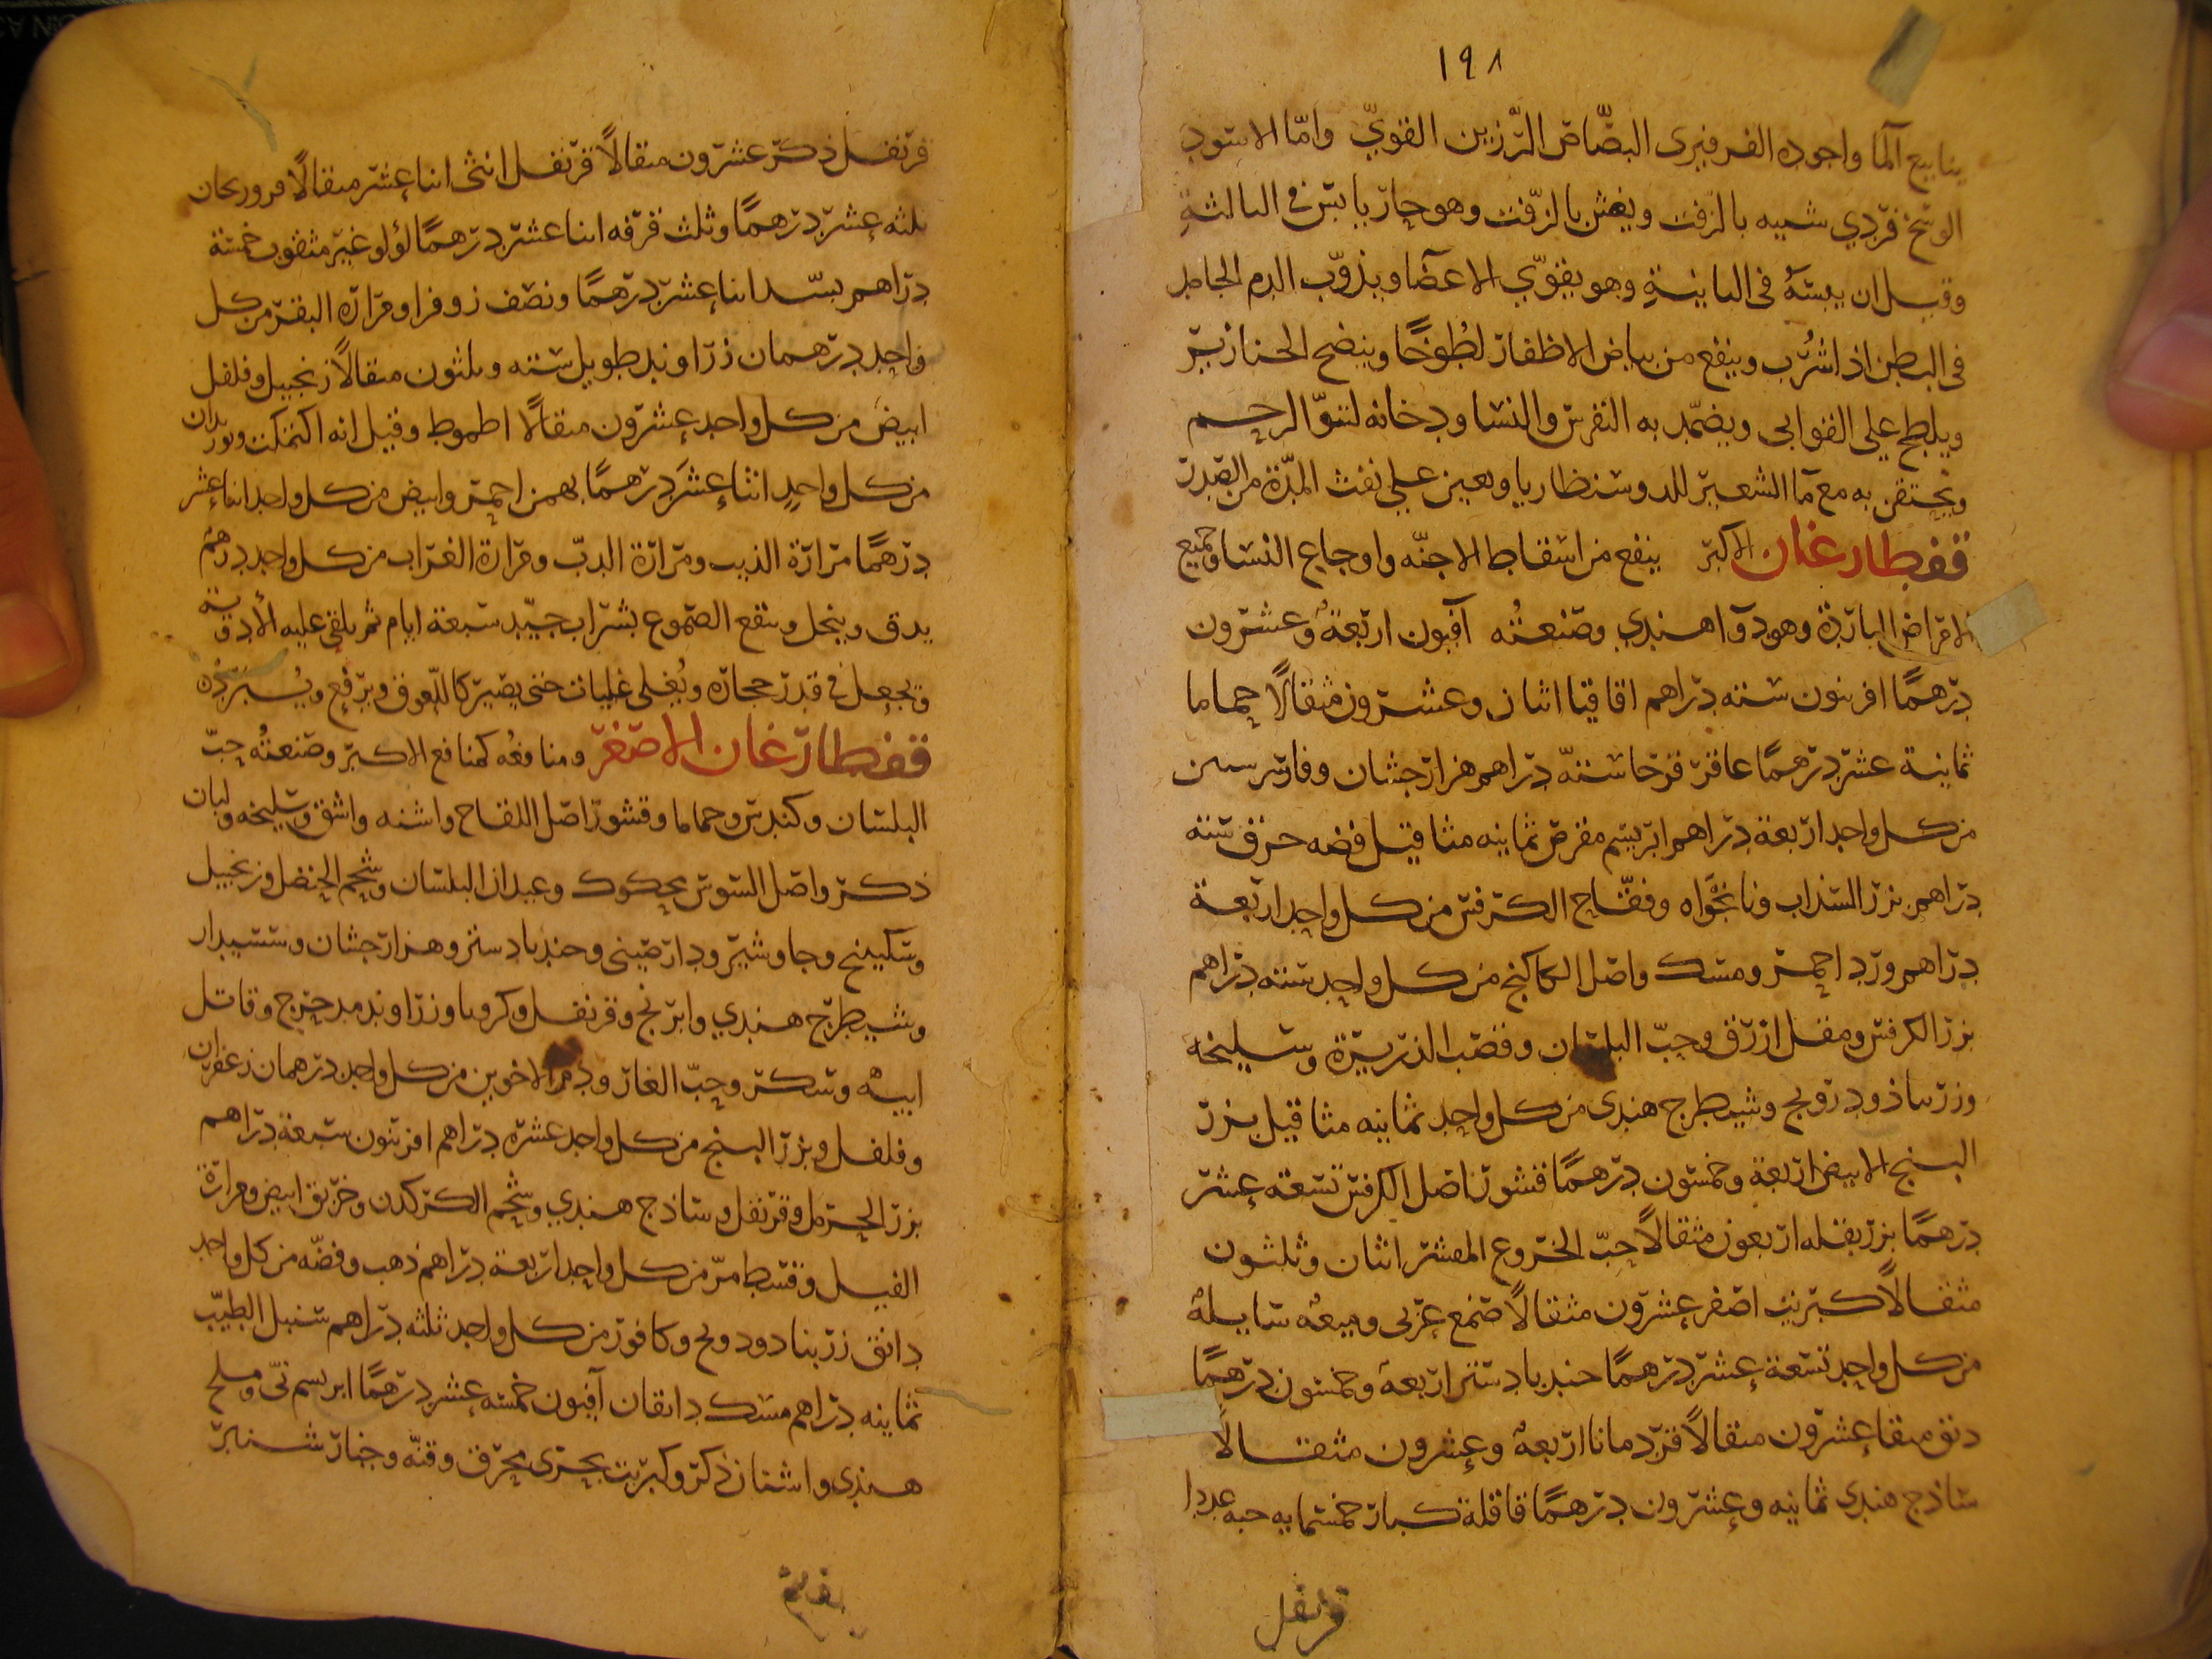 ١٩٨
ينابيع آلما واجوده القرفيرى البصّاص الرّزين القويّ وامّا الاسود
الوسخ فردي شبيه بالزفت ويغش بالزّفت وهو حار يابس في الثالثةِ
وقيل ان يبسَهُ فى الثانيةِ وهو يقوّي الاعضا ويذوّب الدم الجامد
فى البطن اذا شُرب وينفع من بياض الاظفار لطُوخًا وينضح الخنازير
ويلطخ علي القوابى ويضمّد به النقرس والنسا ودخانه لنتوّ الرحم
ويحتقن به مع مآ الشعير للدوسنطاريا ويعين علي نفث المِدّة من الصدر
قفطارغان الاكبر ينفع من اسقاط الاجنّه واوجاع النسا وجميع
الامراض الباردة وهو دوآ هندي وصنعتُه آفيون اربَعةٌ وعشرون
درهمًا افربيون سته دراهم اقاقيا اثنان وعشرون مثقالًا حماما
ثمانية عشر درهمًا عاقر قرحا ستةّ دراهم هزارجشان وفاشرستين
من كل واحد اربعة دراهم ابريسم مقرض ثمانيه مثاقيل فضه حرق سته
دراهم بزر السذاب ونانخَواه وفقّاح الكرفس من كل واحد اربَعة
دراهم ورد احمر ومسك واصل الكاكنج من كل واحد سته دراهم
بزر الكرفس ومقل ازرق وحبّ البلسان وقصَب الذريرَة وسليخه
وزرنباذ ودرونج وشيطرج هندى من كل واحد ثمانيه مثاقيل بزر
البنج الابيض اربعة وخمسون درهمًا قشور اصل الكرفس تسعة عشر
درهمًا بزر بقله اربعون مثقالًا حبّ الخروع المقشر اثنان وثلثون
مثقالًا كبريت اصفر عشرون مثقالًا صمغ عربى وميعهٌ سايلهٌ
من كل واحد تسعة عشر درهمًا جندبادستر اربعهٌ وخمسون درهمًا
دبق منقا عشرون مثقالًا قردمانا اربَعهٌ وعشرون مثقالًا
ساذج هندي ثمانيه وعشرون درهمًا قاقلة كبار خمسمايه حبه عددا
قرنفل
قرنفل ذكر عشرون مثقالًا قرنفل انثى اثنا عشر مثقالًا مرورىحان
ثلثه عشر درهمًا وثلث قرفه اثنا عشر درهمًا لؤلو غير مثقوب خمسة
دراهم بسّد اثنا عشر درهمًا ونصف زوفرا ومرارة البقر من كل
واحد درهمان زراوند طويل سته وثلثون مثقالًا زنجبيل وفلفل
ابيض من كل واحد عشرون مثقالًا اطموط وقيل انه اكتمكت وتودران
من كل واحدٍ اثنا عشَر درهمًا بهمن احمر وابيض من كل واحد اثنا عشر
درهمًا مرارَة الذيب ومرَارَة الدبّ ومرارة الغراب من كل واحد درهم
يدق وينخل وينقع الصّموع بشراب جيّد سَبعة ايام ثم يلقى عليه الأدوية
ويجعل في قدر حجارَه ويُغلى غليات حتى يصَير كاللّعوق ويرفع ويُستخدم
قفطارغان الاصغر ومنافعُه كمنافع الاكبر وصنعتُه حبّ
البلسان وكندس وحماما وقشور اصل اللفاح واشنه واشق وسليخه ولبان
ذكر واصل السوس محكوك وعيدان البلسان وشحم الحنضل وزنجبيل
وسكبينج وجاوشير ودارصيني وجندبادستر وهزارجشان وششيدار
وشيطرج هندي وابرنج وقرنفل وكرويا وزراوند مدحرج وقاتل
ابيهُ وسكر وحبّ الغار ودم الاخوين من كل واحد درهمان زعفران
وفلفل وبزر البنج من كل واحد عشرَه دراهم افربيون سَبعَة دراهم
بزر الحرمل وقرنفل وساذج هندي وشحم الكركدن وخربق ابيض ومرارة
الفيل وقسط مرّ من كل واحد اربعة دراهم ذهب وفضّه من كل واحد
دانق زرنبا درونج وكافور من كل واحد ثلثه دراهم سنبل الطيّب
ثمانيه دراهم مسك دانقان آفيون خمسَه عشر درهمًا ابريسم نىّ وملح
هندى واشنان ذكر وكبريت بحرى محرق وقنّه وخيارشنبر